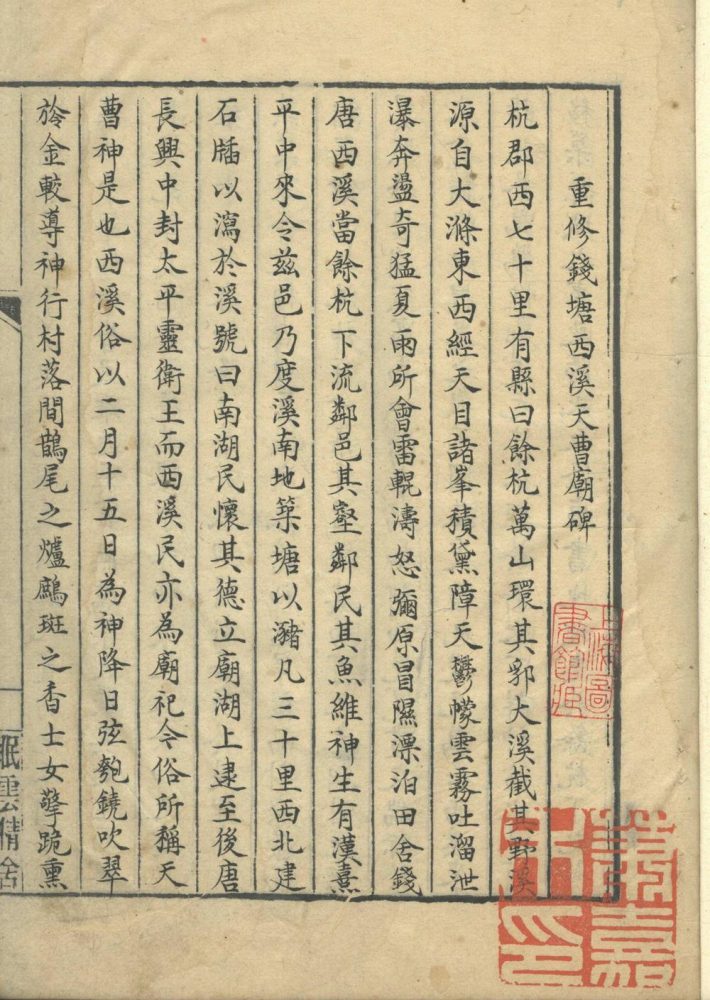 重修錢塘西溪天曹廟碑
杭郡西七十里有縣曰餘杭萬山環其郛大溪截其野溪
源自大滌東西經天目諸峯積黛障天鬱幪雲霧吐溜泄
瀑奔盪奇猛夏雨所會雷輥濤怒彌原冒隰漂泊田舍錢
唐西溪當餘杭下流鄰邑其壑鄰民其魚維神生有漢熹
平中來令茲邑乃度溪南地築塘以瀦凡三十里西北建
石牐以瀉於溪號曰南湖民懷其德立廟湖上逮至後唐
長興中封太平靈衛王而西溪民亦為廟祀今俗所稱天
曹神是也西溪俗以二月十五日為神降日弦匏鐃吹翠
旍金較導神行村落間鵲尾之爐鷓斑之香士女擎跪熏
眠雲精舍
上海圖書館藏